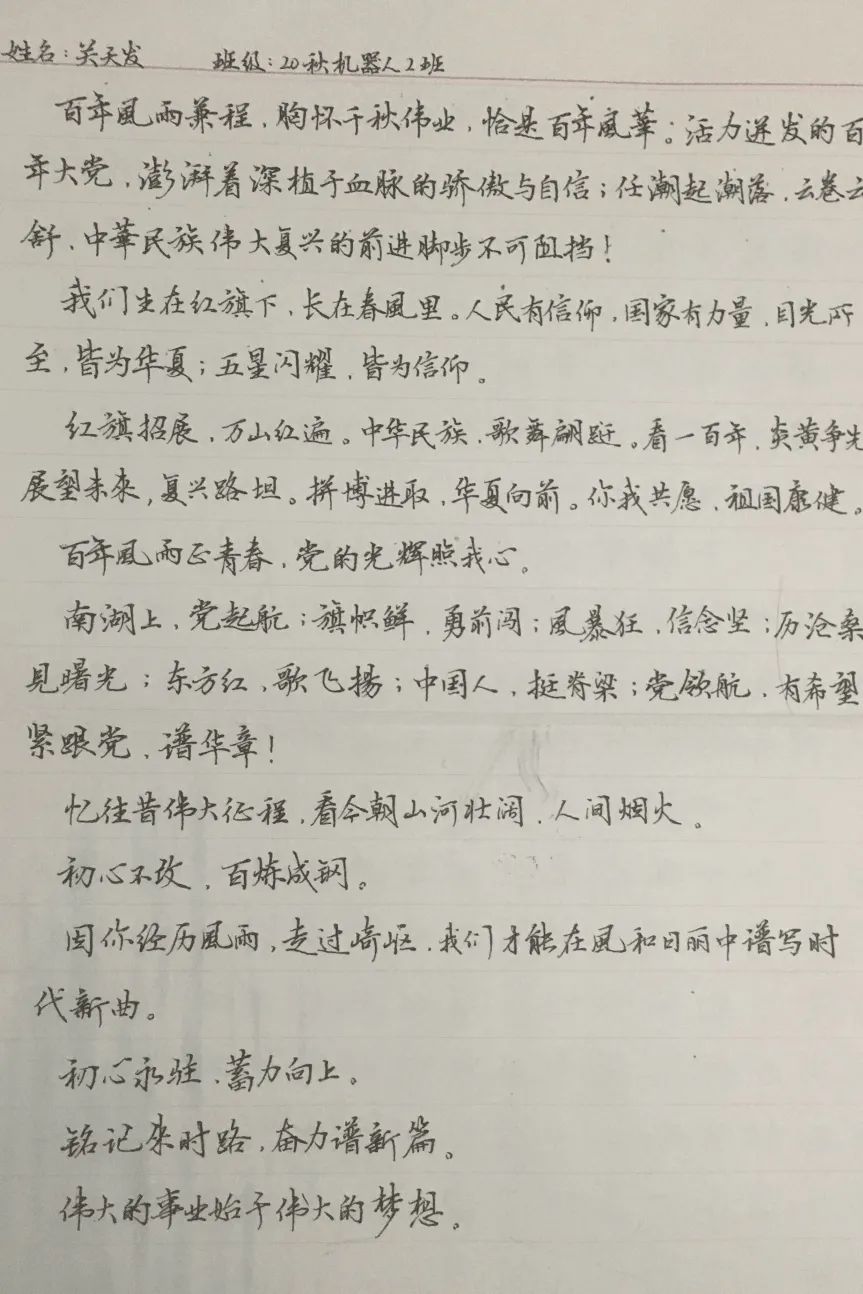 姓名：关天发 班级：20秋机器人2班
百年風雨兼程，胸怀千秋伟业，恰是百年風華。活力迸发的百
年大党，澎湃着深植于血脉的骄傲与自信；任潮起潮落，云卷云
舒，中華民族伟大复兴的前进脚步不可阻挡！
我们生在红旗下，长在春風里。人民有信仰，国家有力量，目光所
至，皆为华夏；五星闪耀，皆为信仰。
红旗招展，万山红遍。中华民族，歌舞翩跹。看一百年，炎黄争先
展望未來，复兴路坦。拼博进取，华夏向前。你我共愿，祖国康健。
百年風雨正青春，党的光辉照我心。
南湖上，党起航；旗帜鲜，勇前闯；風暴狂，信念坚；历沧桑
見曙光；东方红，歌飞揚；中国人，挺脊梁；党领航，有希望
紧跟党，谱华章！
忆往昔伟大征程，看今朝山河壮阔，人间烟火。
初心不改，百炼成钢。
因你经历風雨，走过崎岖，我们才能在風和日丽中谱写时
代新曲。
初心永驻，蓄力向上。
铭记来时路，奋力谱新篇。
伟大的事业始于伟大的梦想。